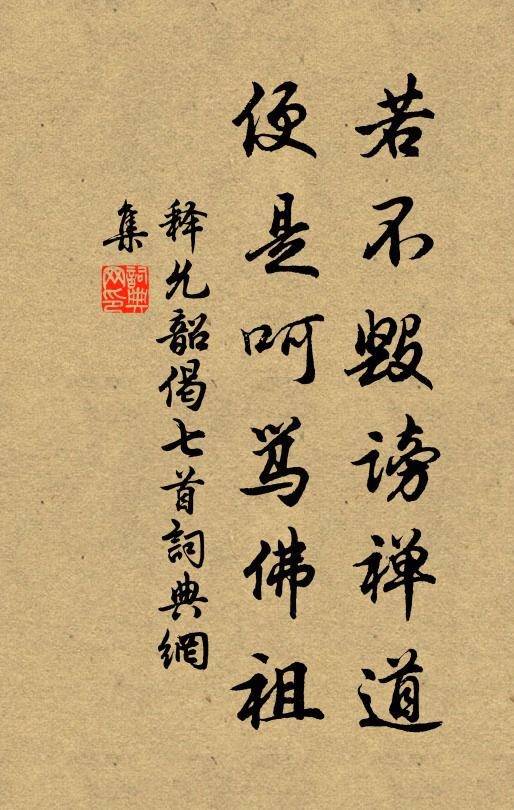 若不毁謗禅道
便是呵骂佛祖
释允韶偈七首詞典網
集
詞典
网印